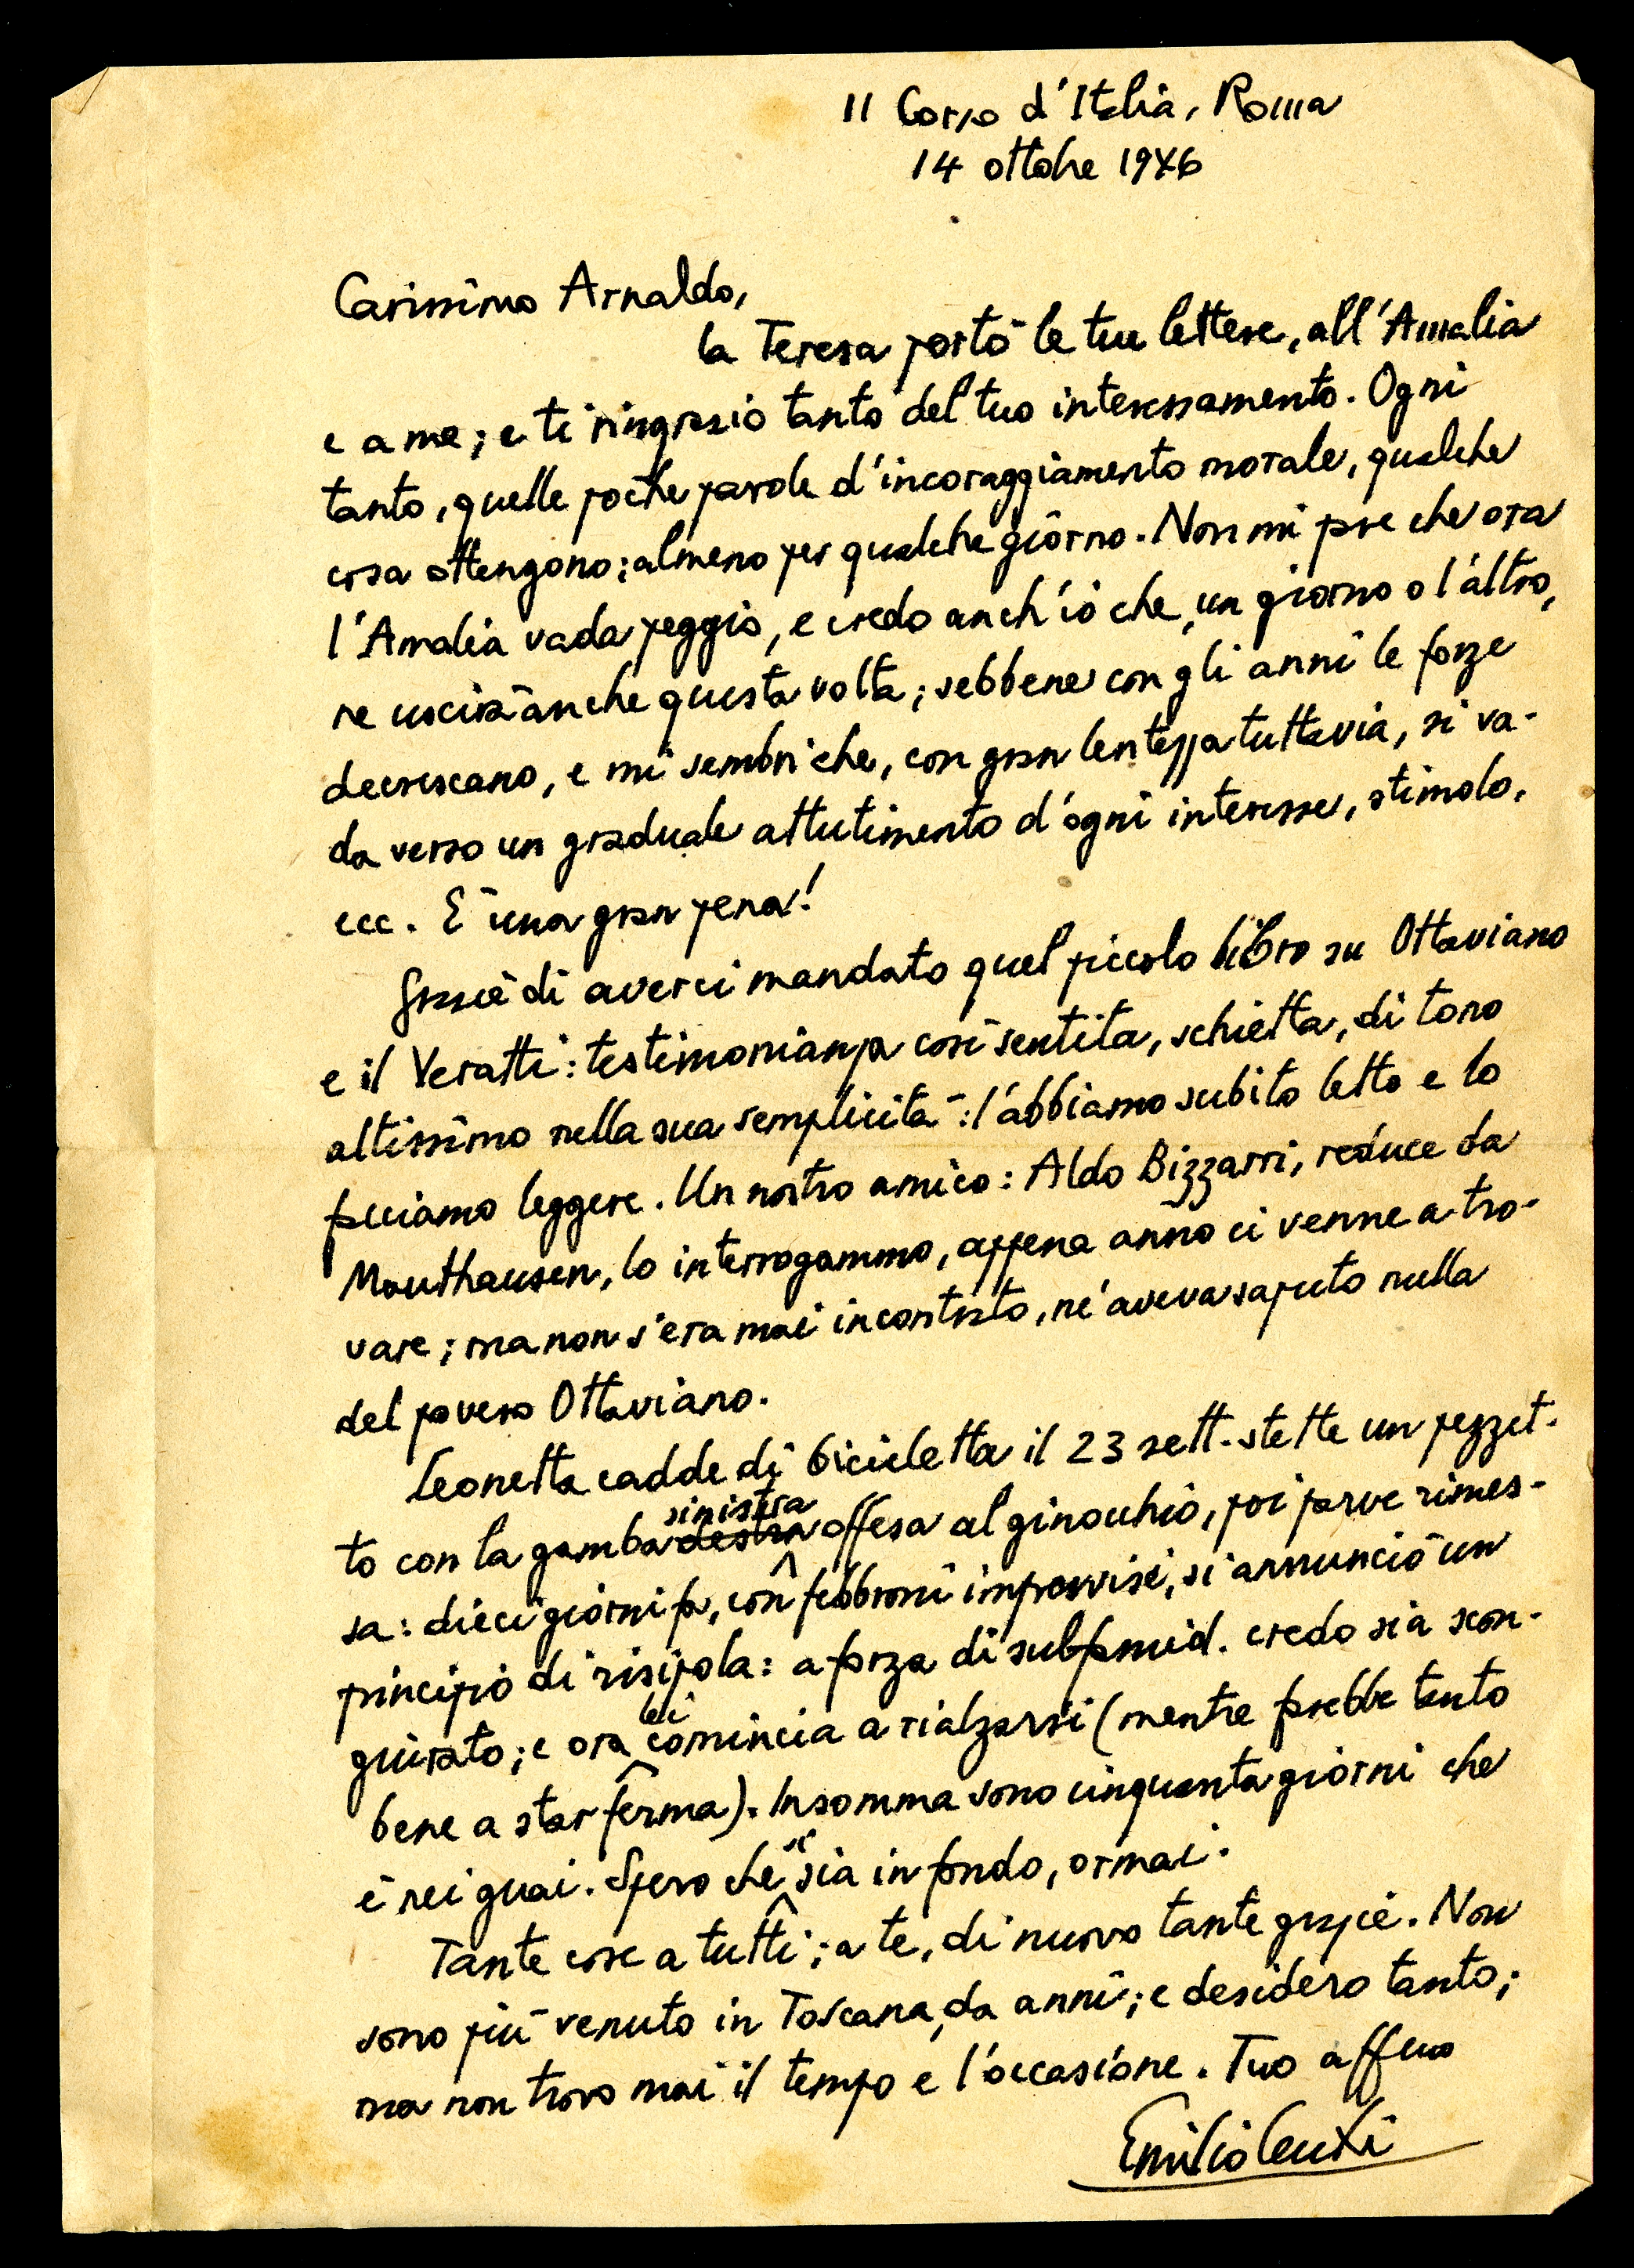 11 Corso d'Italia, Roma
14 ottobre 1946
Carissimo Arnaldo,
la Teresa portò le tue lettere, all'Amalia
e a me; e ti ringrazio tanto del tuo interessamento. Ogni
tanto, quelle poche parole d'incoraggiamento morale, qualche
cosa ottengono; almeno per qualche giorno. Non mi pare che ora
l'Amalia vada peggio, e credo anch'io che, un giorno o l'altro,
ne uscirà anche questa volta; sebbene con gli anni le forze
decrescano, e mi sembri che, con gran lentezza tuttavia, si va-
da verso un graduale attutimento d'ogni interesse, stimolo,
ecc. È una gran pena!
Grazie di averci mandato quel piccolo libro su Ottaviano
e il Veratti: testimonianza così sentita, schietta, di tono
altissimo nella sua semplicità: l'abbiamo subito letto e lo
facciamo leggere. Un nostro amico: Aldo Bizzarri, reduce da
Mauthausen, lo interrogammo, appena anno ci venne a tro-
vare; ma non s'era mai incontrato, né aveva saputo nulla
del povero Ottaviano.
Leonetta cadde di bicicletta il 23 sett. stette un pezzet-
to con la gamba destra sinistra offesa al ginocchio, poi parve rimes-
sa: dieci giorni fa, con febbroni improvvisi, si annunciò un
principio di risipola: a forza di sulfamid. credo sia scon-
giurato; e ora lei comincia a rialzarsi (mentre farebbe tanto
bene a star ferma). Insomma sono cinquanta giorni che
è nei guai. Spero che si sia in fondo, ormai.
Tante cose a tutti; a te, di nuovo tante grazie. Non
sono più venuto in Toscana, da anni; e desidero tanto;
ma non trovo mai il tempo e l'occasione. Tuo affmo
Emilio Cecchi